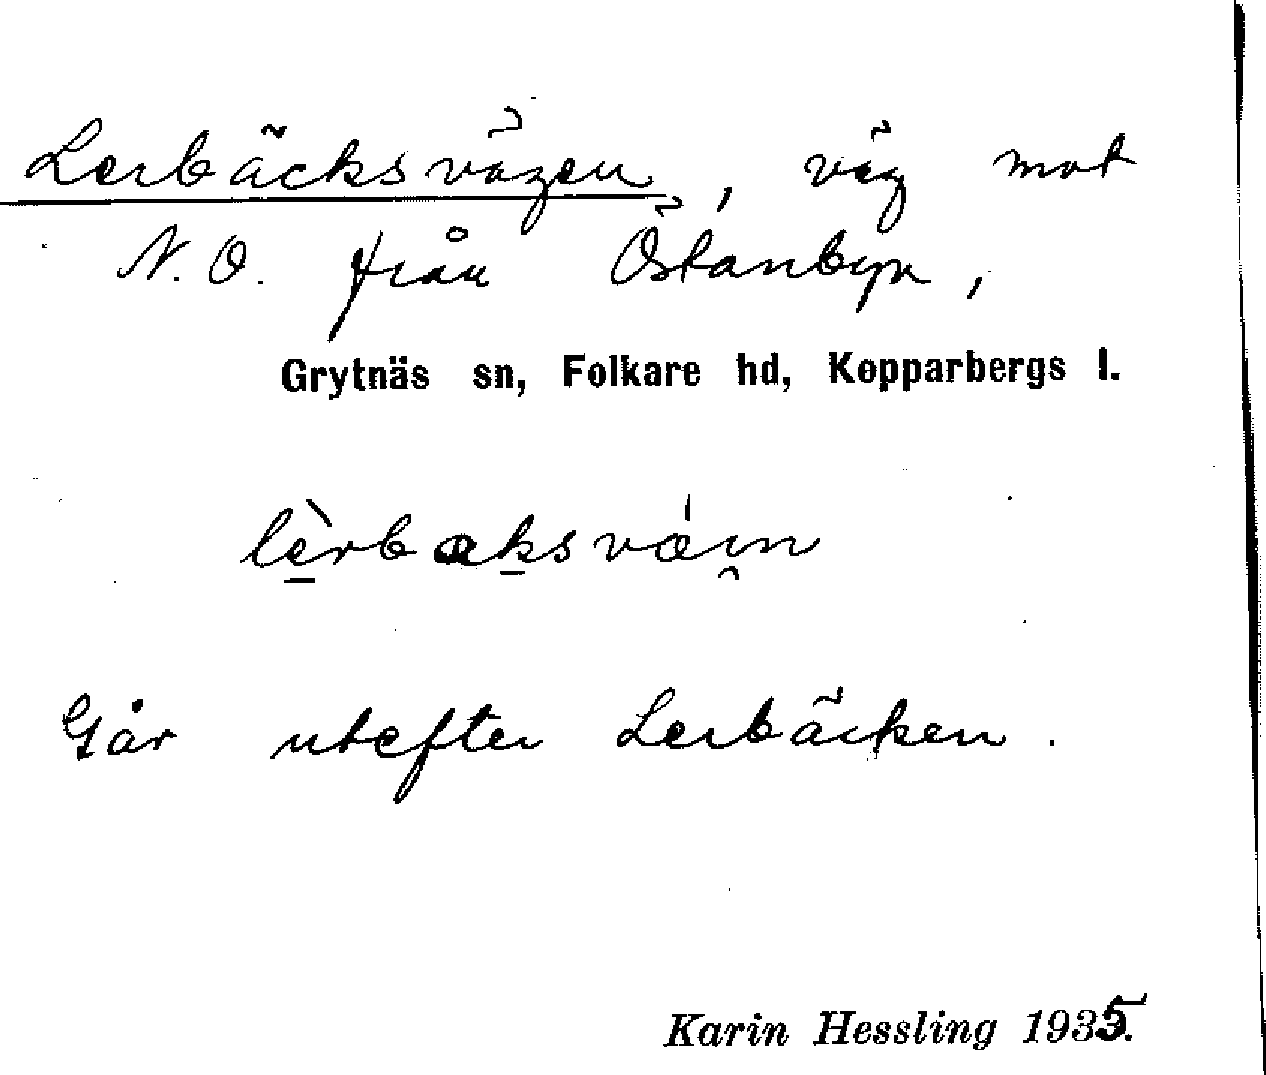 Lerbäcksvägen, väg mot
N.O. från Östanbyn,
Grytnäs sn, Folkare hd, Kopparbergs l.
lè̱rbaḵsvǽi̯n
Går utefter Lerbäcken.
Karin Hessling 1935.